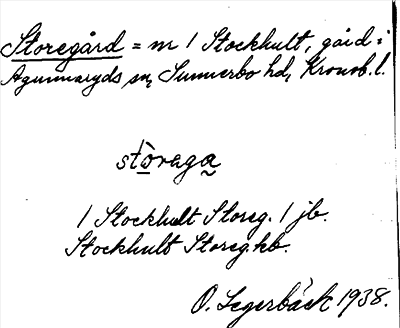 Storegård = n 1 Stockhult, gård i
Agunnaryds sn, Sunnerbo hd, Kronob. l.
stòraga
1 Stockhult Storeg. 1 jb.
Stockhult Storeg. kb.
O. Segerbäck 1938.